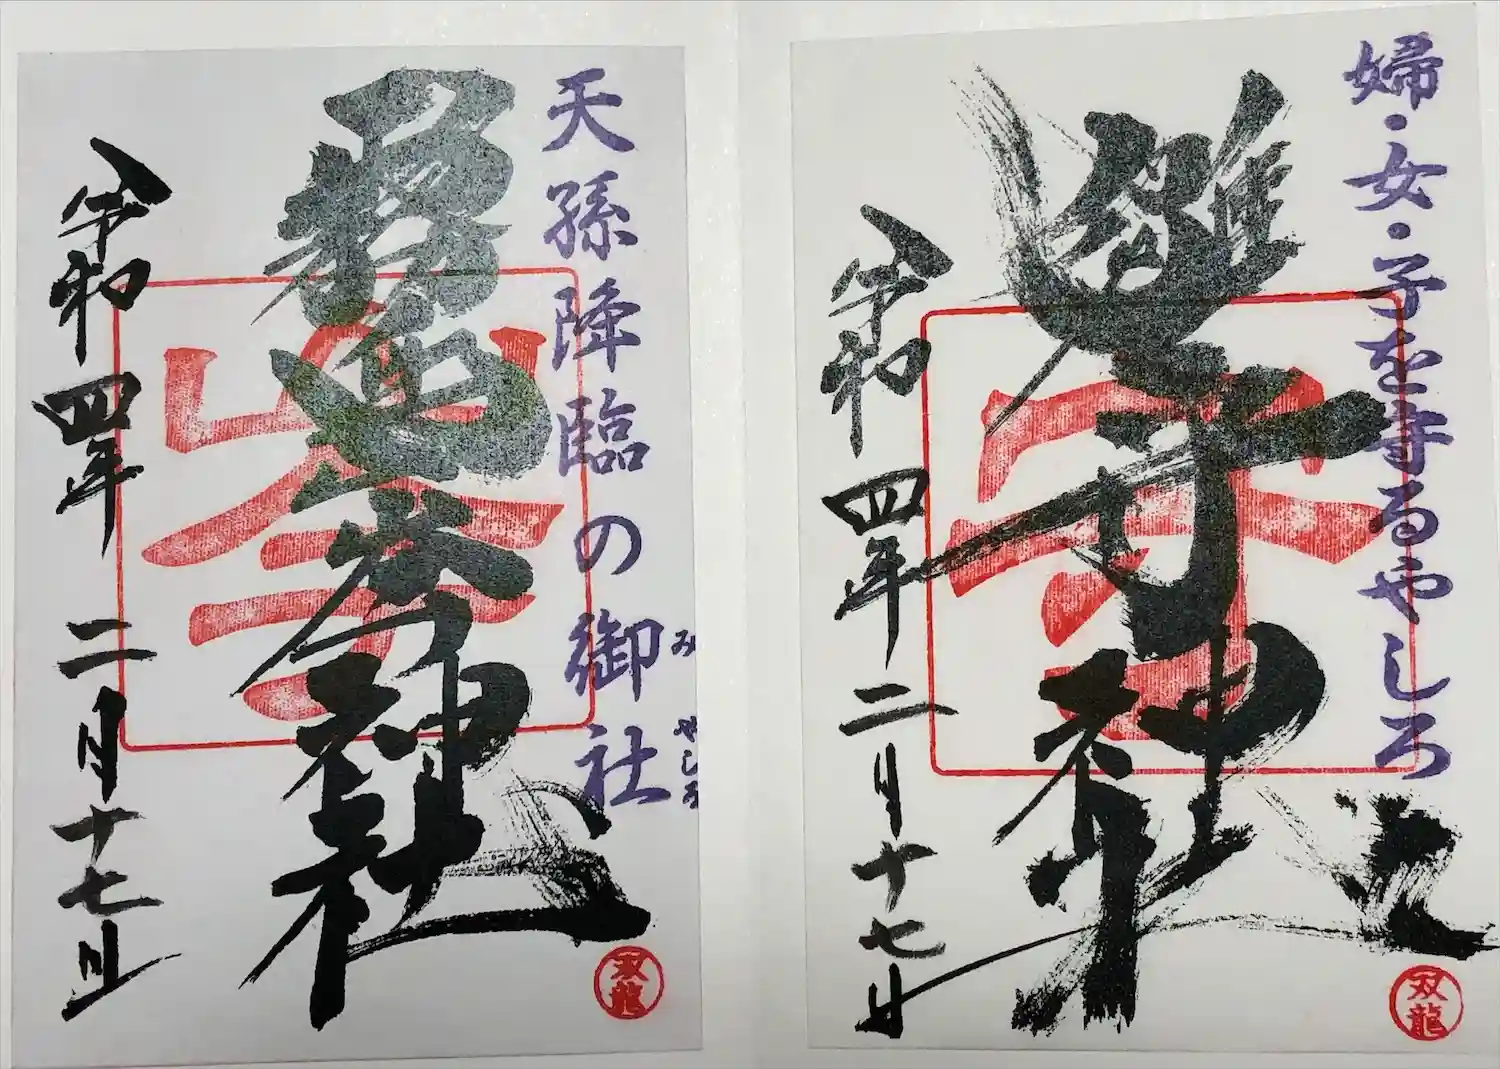 婦・女・子を守るやしろ
雛守神社
令和四年二月十七日
双龍
天孫降臨の御社
み
やしろ
霧島岑神社
岑
令和四年二月十七日
双龍